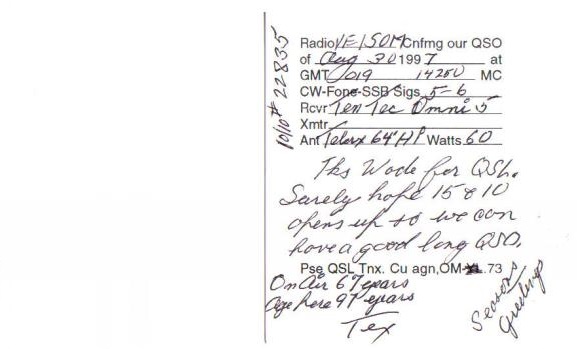 10/10 # 22835
Radio VE1SOM Cnfrng our QSO
of Aug 30 1997 at
GMT 1019 14250 MC
CW-Fone-SSB Sigs 5-6
Rcvr Ten Tec Omni 5
Xmtr
Ant Telrex 64' HP Watts 60
Tks Wade for QSL.
Surely hope 15 & 10
opens up so we can
have a good long QSO.
Pse QSL Tnx. Cu agn, OM-YL 73
On Air 67 years
Age here 97 years
Tex
Seasons
Greetings